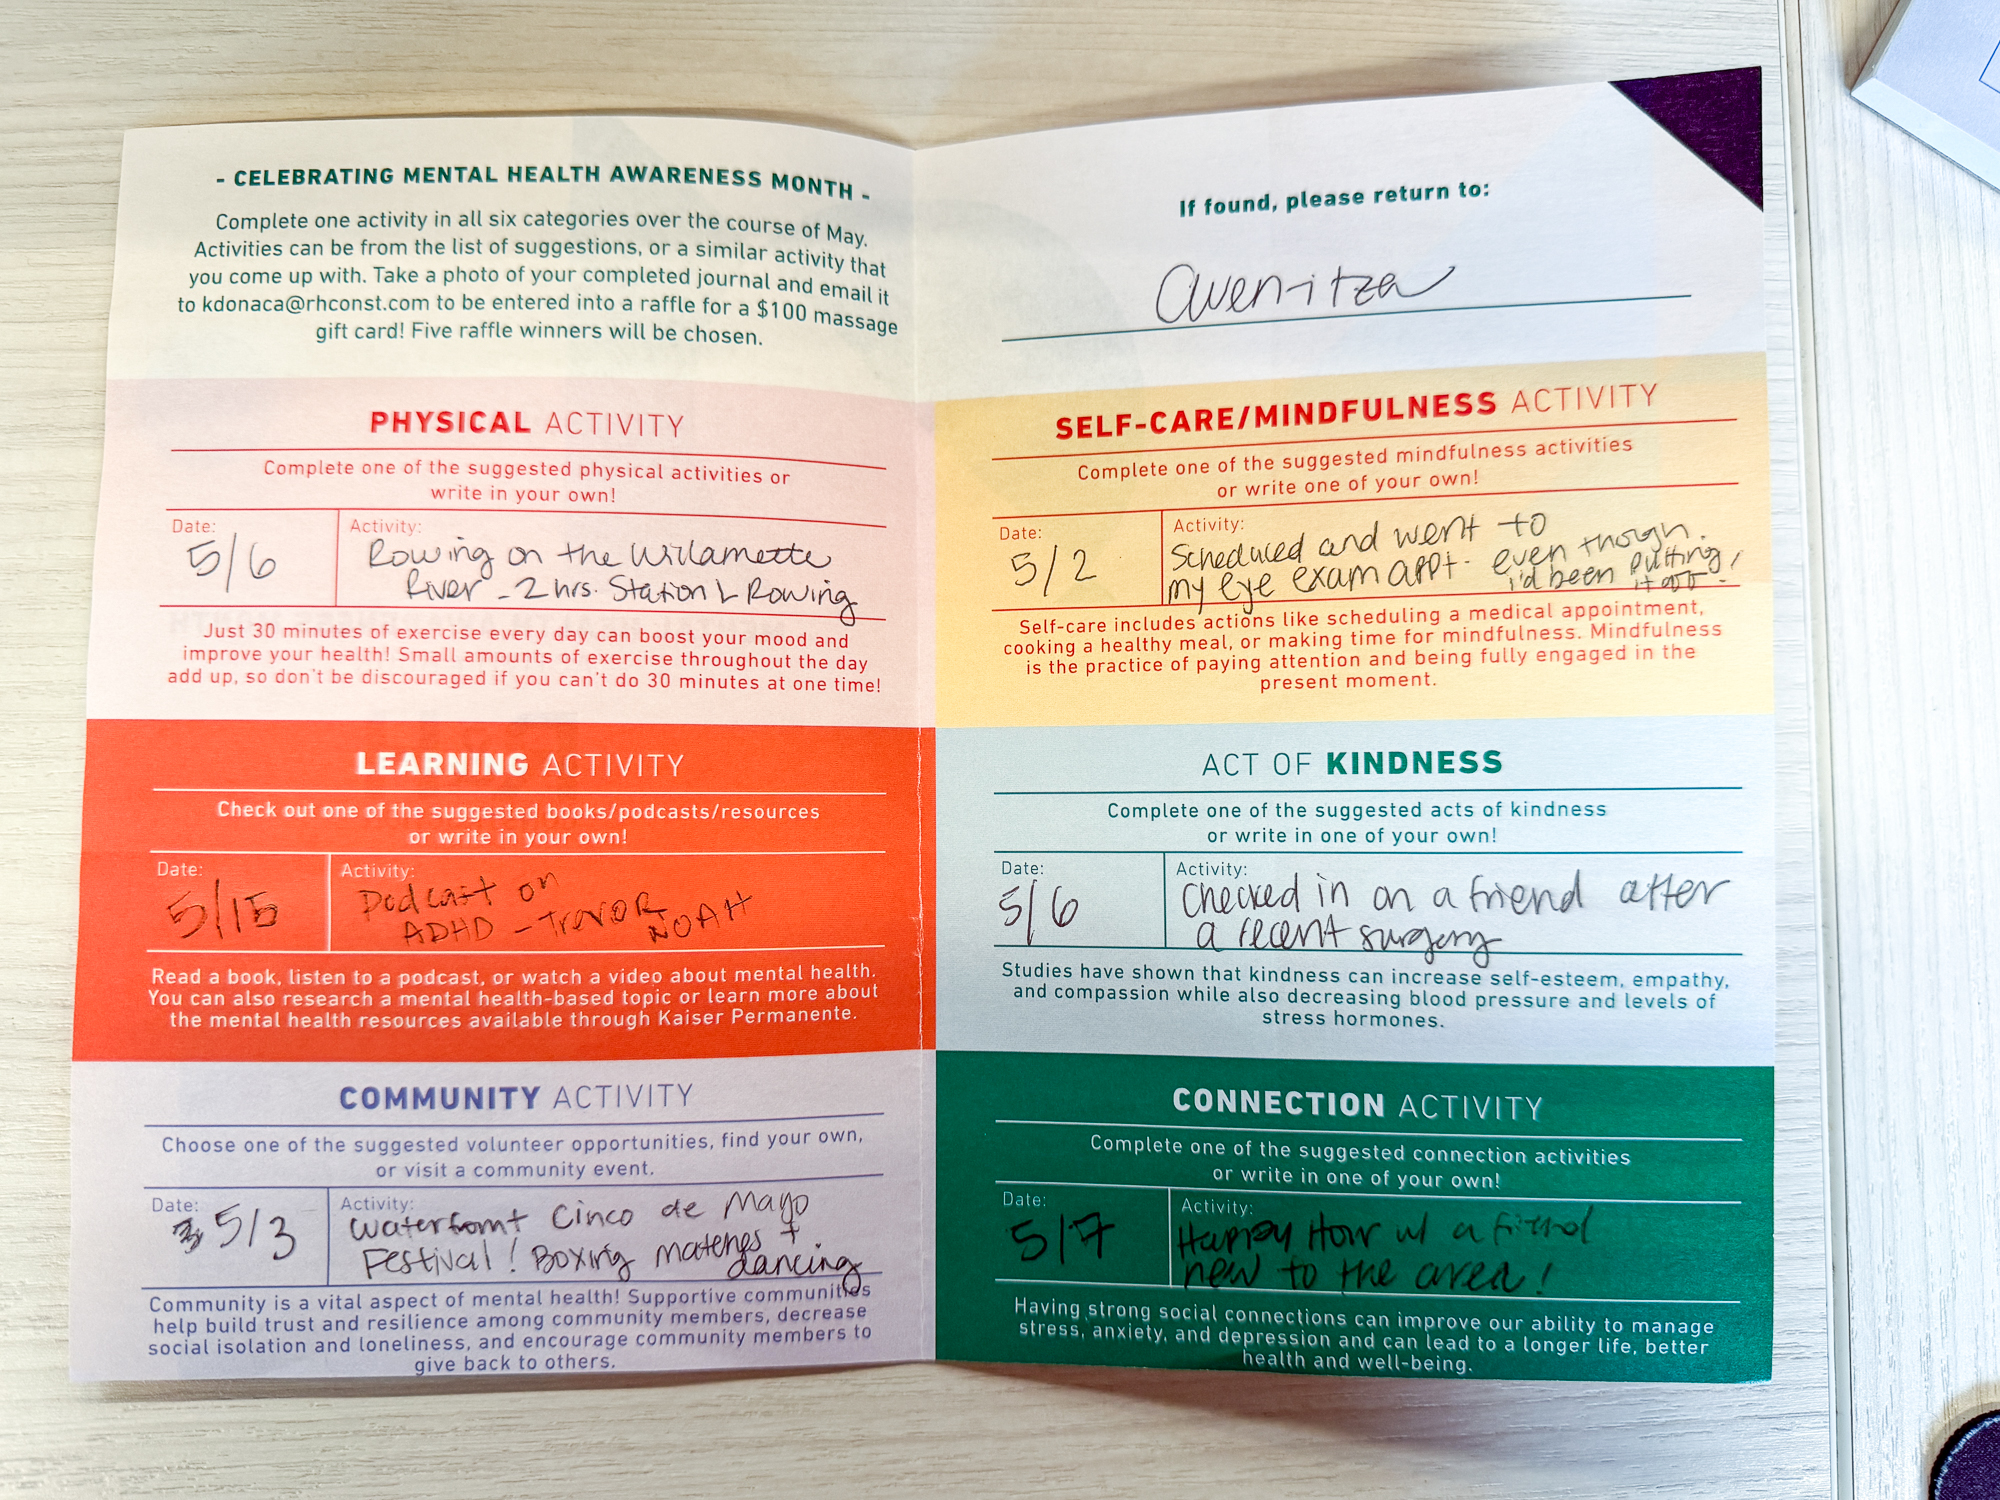 - CELEBRATING MENTAL HEALTH AWARENESS MONTH -
Complete one activity in all six categories over the course of May.
Activities can be from the list of suggestions, or a similar activity that
you come up with. Take a photo of your completed journal and email it
to kdonaca@rhconst.com to be entered into a raffle for a $100 massage
gift card! Five raffle winners will be chosen.
If found, please return to:
avenitza
PHYSICAL ACTIVITY
Complete one of the suggested physical activities or
write in your own!
Date:
5/6
Activity:
Rowing on the Willamette
River - 2 hrs. Station L Rowing
Just 30 minutes of exercise every day can boost your mood and
improve your health! Small amounts of exercise throughout the day
add up, so don't be discouraged if you can't do 30 minutes at one time!
SELF-CARE/MINDFULNESS ACTIVITY
Complete one of the suggested mindfulness activities
or write one of your own!
Date:
5/2
Activity:
Scheduled and went to
my eye exam appt. even though
i'd been putting
it off!
Self-care includes actions like scheduling a medical appointment,
cooking a healthy meal, or making time for mindfulness. Mindfulness
is the practice of paying attention and being fully engaged in the
present moment.
LEARNING ACTIVITY
Check out one of the suggested books/podcasts/resources
or write in your own!
Date:
5/15
Activity:
Podcast on
ADHD - Trevor
NOAH
Read a book, listen to a podcast, or watch a video about mental health.
You can also research a mental health-based topic or learn more about
the mental health resources available through Kaiser Permanente.
ACT OF KINDNESS
Complete one of the suggested acts of kindness
or write in one of your own!
Date:
5/6
Activity:
Checked in on a friend after
a recent surgery
Studies have shown that kindness can increase self-esteem, empathy,
and compassion while also decreasing blood pressure and levels of
stress hormones.
COMMUNITY ACTIVITY
Choose one of the suggested volunteer opportunities, find your own,
or visit a community event.
Date:
5/3
Activity:
Waterfornt Cinco de Mayo
Festival! Boxing matches +
dancing
Community is a vital aspect of mental health! Supportive communities
help build trust and resilience among community members, decrease
social isolation and loneliness, and encourage community members to
give back to others.
CONNECTION ACTIVITY
Complete one of the suggested connection activities
or write in one of your own!
Date:
5/7
Activity:
Happy Hour w/ a friend
new to the area!
Having strong social connections can improve our ability to manage
stress, anxiety, and depression and can lead to a longer life, better
health and well-being.